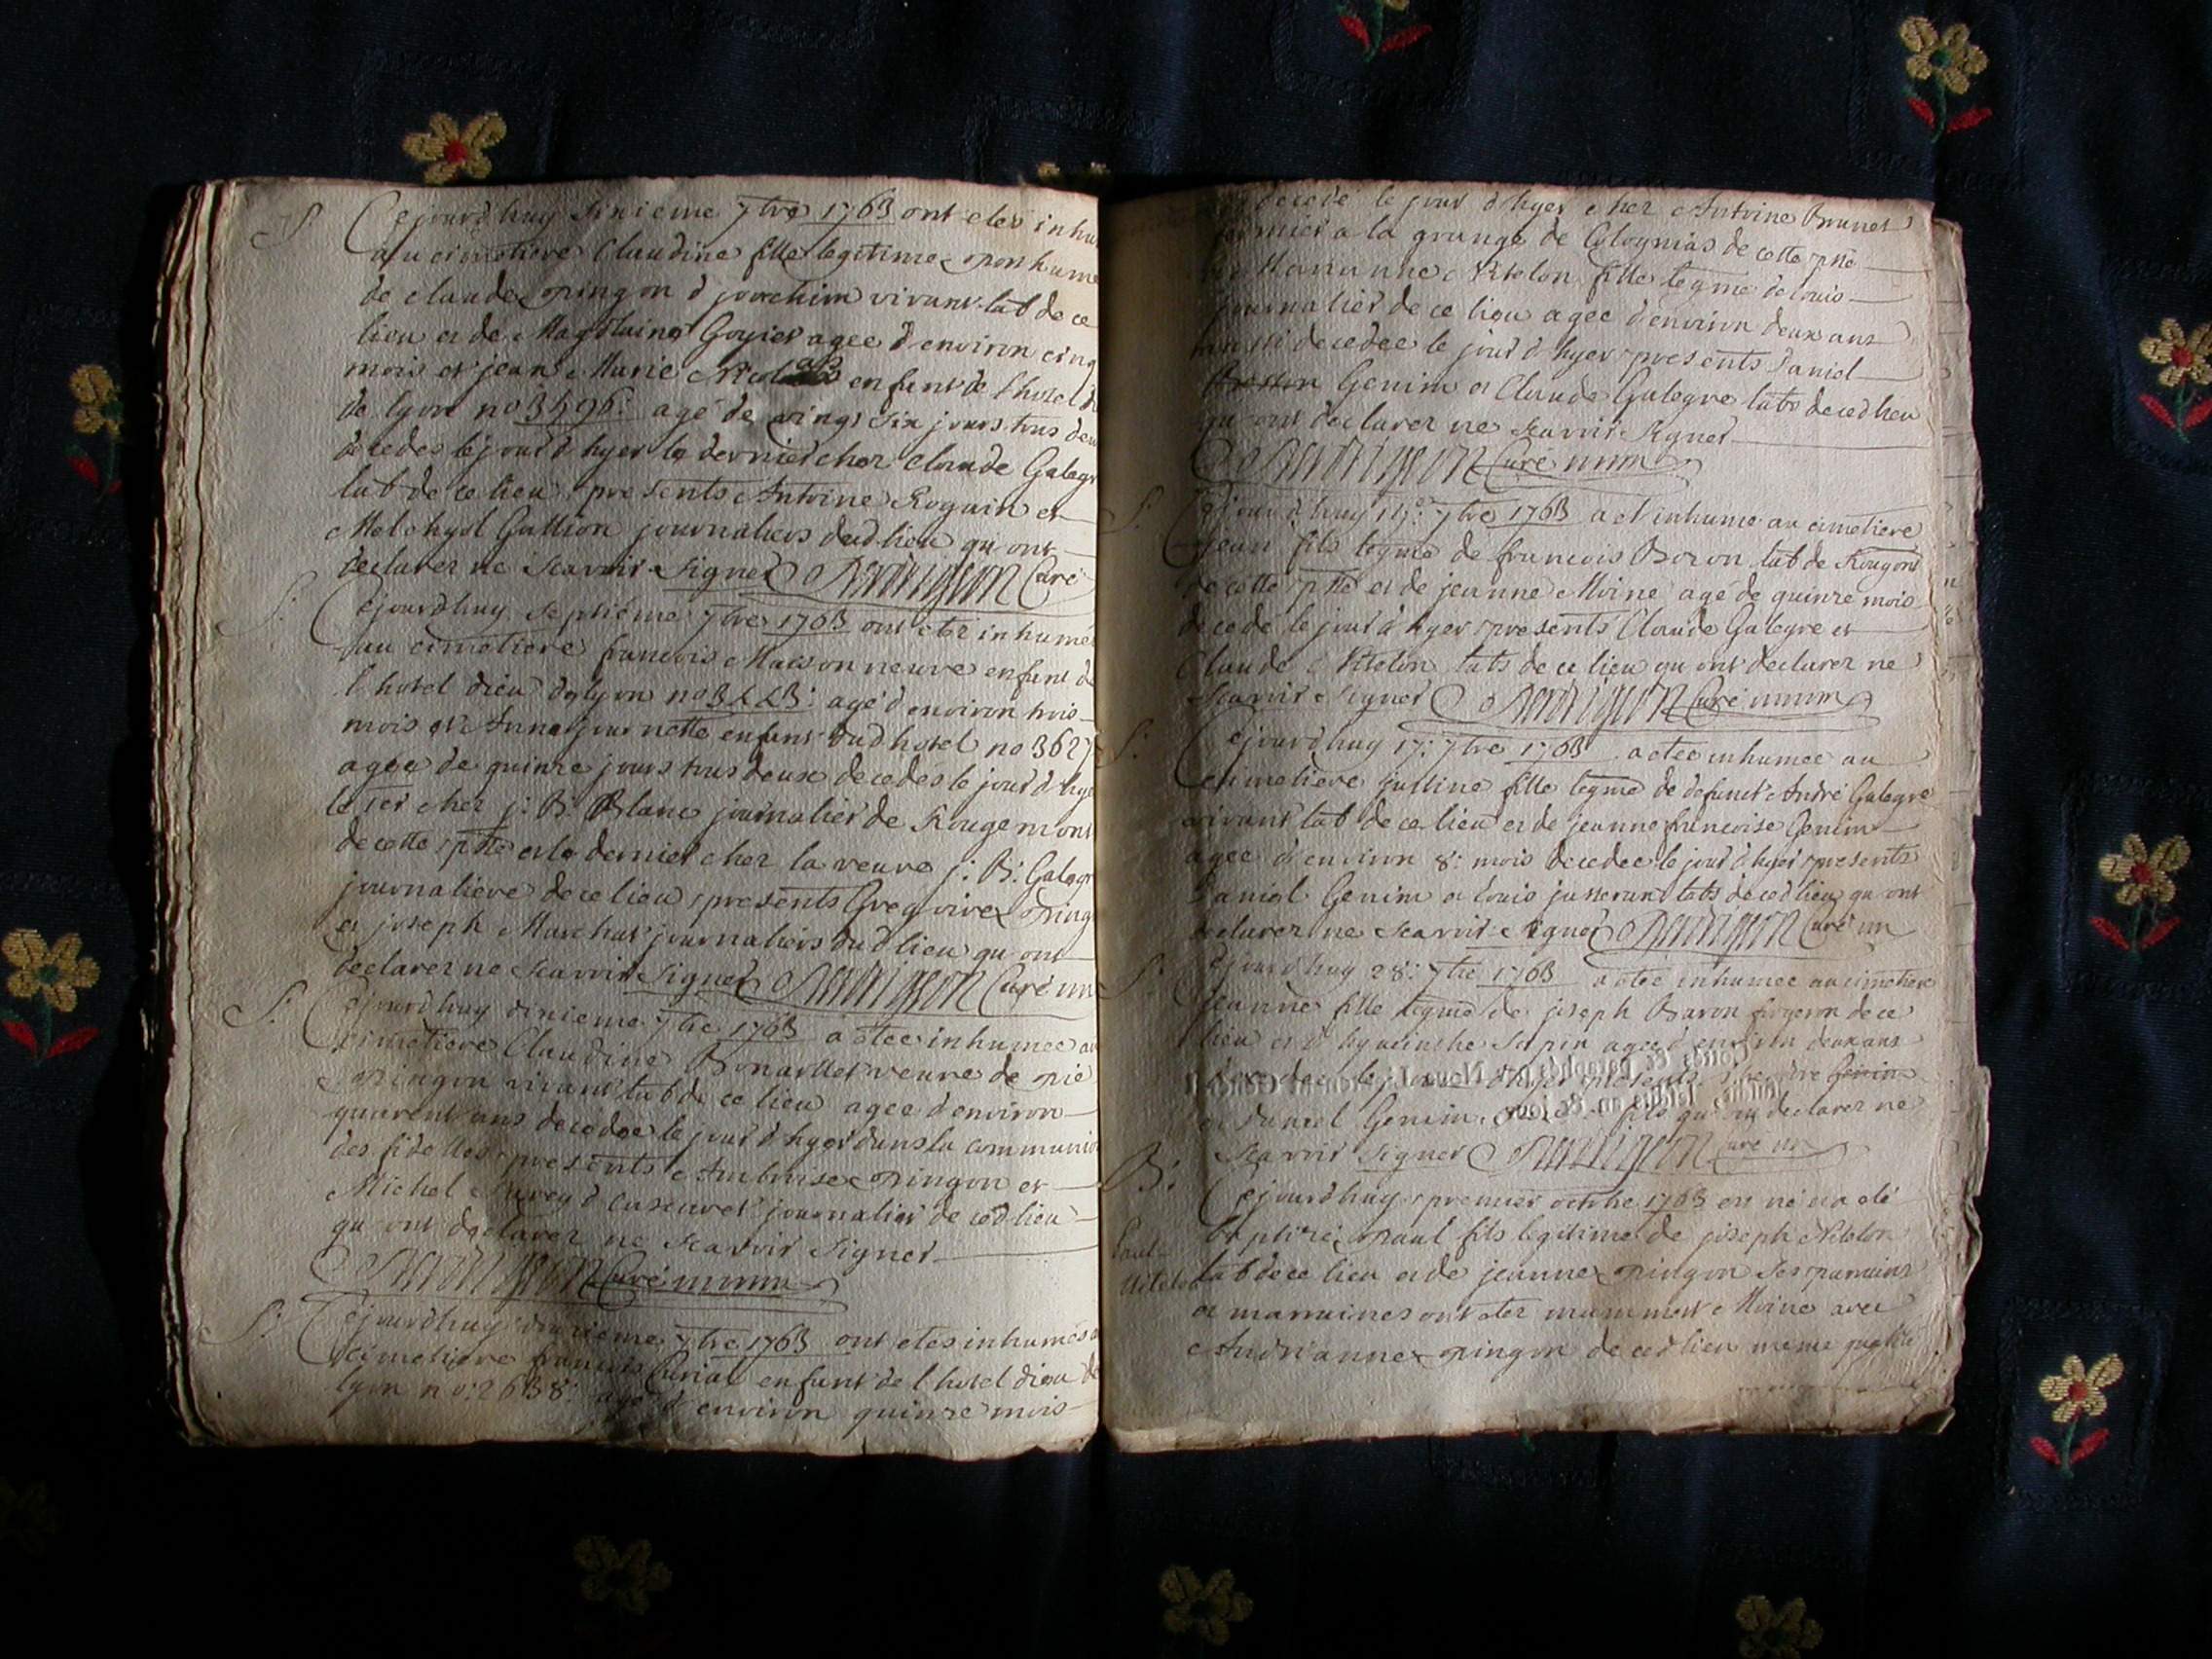 S: Cejourdhuy sixieme 7bre 1763 ont etes inhu
au cimetiere Claudine fille legitime posthume
de claude pingon d joachim vivant lab de ce
lieu et de Magdlaine Goyier agee d'environ cinq
mois et jean Marie Nicolas enfant de l'hotel d
de lyon no 3496: agé de vingt six jours tous deu
decedes le jour d'hyer le dernier chez Claude Galegr
lab de ce lieu presents Antoine Roguin et
Melchyol Gallion journaliers dud lieu qui ont
declarer ne scavoir signer Curé
S: Cejourdhuy septiéme 7bre 1763 ont etez inhumé
au cimetiere francois Maison neuve enfant d
l'hotel dieu de lyon no : agé d'environ trois
mois et Anne journette enfant dud hotel no 3627
agee de quinze jours tous deux decedés le jour d'hye
le 1er chez j: B: Blanc journalier de Rougemont
de cette psse et le dernier chez la veuve j: B: Galegr
journaliere de ce lieu presents Gregoire ping
et joseph Marchat journaliers dud lieu qui ont
declarer ne scavoir signer Curé
S: Cejourdhuy dixieme 7bre 1763 a étée inhumée au
cimetiere Claudine Bonarllet veuve de pie
pingon vivant lab de ce lieu agee d'environ
quarent ans decedee le jour d'hyer dans la communio
des fidelles presents Ambroise pingon et
Michel journalier de ced lieu
qui ont declarer ne scavoir signer
Curé
S: Cejourdhuy onzieme 7bre 1763 ont etés inhumés a
cimetiere francois Curial enfant de l'hotel dieu de
lyon no: 2638: agé d'environ quinze mois
decedé le jour d'hyer chez Antoine Brunet
fermier a la grange de de cette psse
et Marianne Vitelon fille legme de louis
journalier de ce lieu agee d'environ deux ans
aussi decedee le jour d'hyer presents Daniel
Genin et Claude Galegre labs de ced lieu
qui ont declarer ne scavoir signer
Curé
S: Cejourdhuy 7bre 1763 a et inhumé au cimetiere
jean fils legme de francois Boron lab de Rougont
de cette psse et de jeanne Moine agé de quinze mois
decedé le jour d'hyer presents Claude Galegre et
Claude Vitelon labs de ce lieu qui ont declarer ne
scavoir signer Curé
S: Cejourdhuy 17: 7bre 1763 a etee inhumee au
cimetiere justine fille legme de defunct André Galegre
vivant lab de ce lieu et de jeanne francoise Genin
agee d'environ 8: mois decedee le jour d'hyer presents
Daniel Genin et louis jusserant labs de ced lieu qui ont
declarer ne scavoir signer Curé
S: Cejourdhuy 28: 7bre 1763 a étée inhumee au cimetiere
jeanne fille legme de joseph Baron de ce
lieu et d'hyacinthe Sapin agee d'environ deux ans
decedee le jour d'hyer presents Genin
et Daniel Genin fils qui ont declarer ne
scavoir signer Curé
B: Cejourdhuy premier octbre 1763 est né et a eté
Paul baptizé paul fils legitime de joseph Vitelon
Vitelon lab de ce lieu et de jeanne pingon ses parains
et marraines ont etez mammert Moine avec
Andrianne pingon de ced lieu même qualité